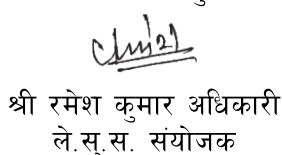 श्री रमेश कुमार अधिकारी
ले.स्.स. संयोजक